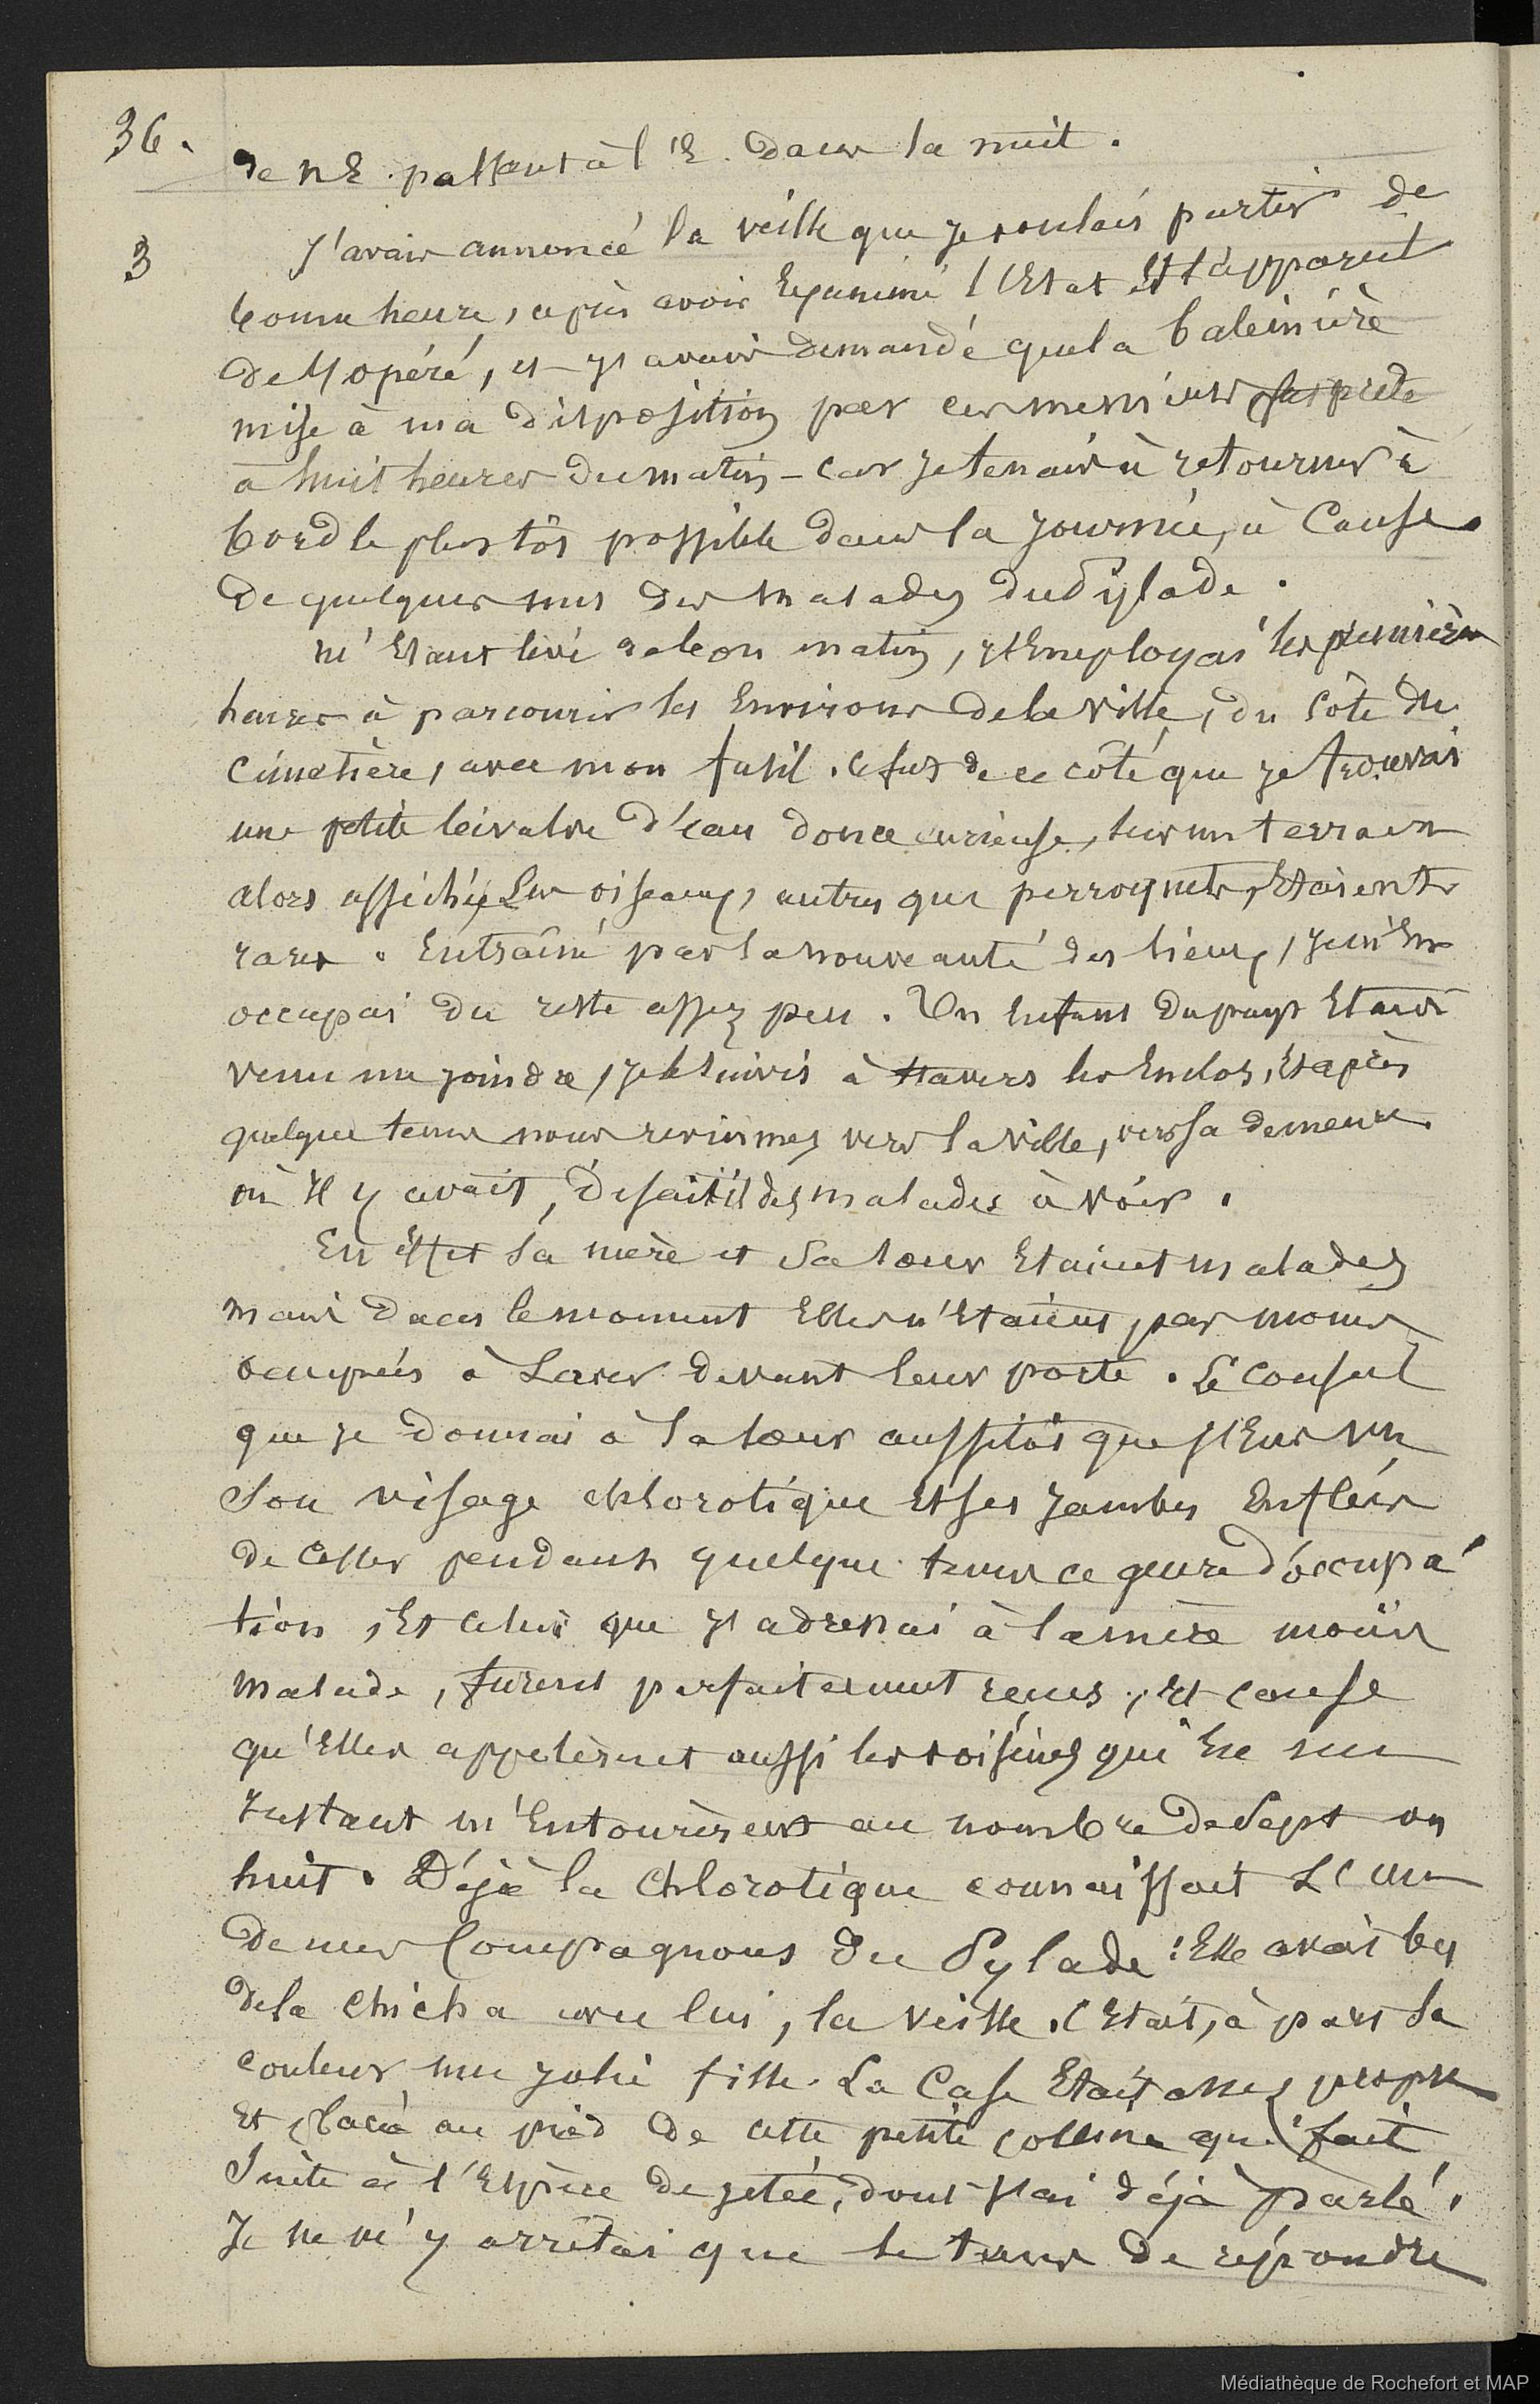 36.
de NE. passant à l'E. dans la nuit.
3
J'avais annoncé la veille que je voulais partir de
bonne heure, après avoir Examiné l'Etat Et l'appareil
de l'opéré, et j'avais demandé que la baleinière
mise à ma disposition par ces messieurs fut prête
à huit heures du matin - car je tenais à retourner à
bord le plus tôt possible dans la journée, à Cause
de quelques uns des malades du Pylade.
m'Etant levé de bon matin, j'Employai les premières
heures à parcourir les Environs de la ville, du Côté du
Cimetière, avec mon fusil. Ce fut de ce côté que je trouvai
une petite bivalve d'eau douce curieuse, sur un terrain
alors asséché. Les oiseaux, autres que perroquets, Etaient
rares. Entraîné par la nouveauté des lieux, je m'En
occupai du reste assez peu. Un Enfant du pays Etait
venu me joindre, je le suivis à travers les Enclos, Et après
quelque tems nous revinmes vers la ville, vers sa demeure
où Il y avait, disait-il des malades à voir.
En effet sa mère et sa sœur Etaient malades
mais dans le moment Elles n'Etaient pas moins
occupées à Laver devant leur porte. Le Conseil
que je donnai à la sœur aussitôt que j'Eus vu
son visage chlorotique Et ses jambes Enflées
de Cesser pendant quelque tems ce genre d'occupa
tion, Et celui que j'adressai à la mère moins
malade, furent parfaitement reçus, Et cause
qu'Elles appelèrent aussi les voisines qui En un
Instant m'Entourèrent au nombre de Sept ou
huit. Déjà la Chlorotique connaissait L'un
de mes Compagnons du Pylade: Elle avait bu
de la Chicha avec lui, la veille. C'Etait, à part sa
couleur une jolie fille. La Case Etait assez propre
Et placée au pied de cette petite colline qui fait
Suite à l'Espèce de jetée, dont j'ai déjà parlé.
Je ne m'y arrêtai que le tems de répondre
Médiathèque de Rochefort et MAP